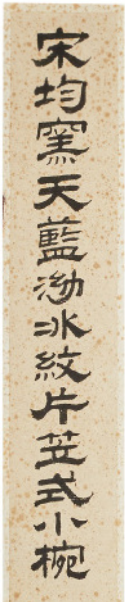 宋均窯天藍泑冰紋片笠式小椀